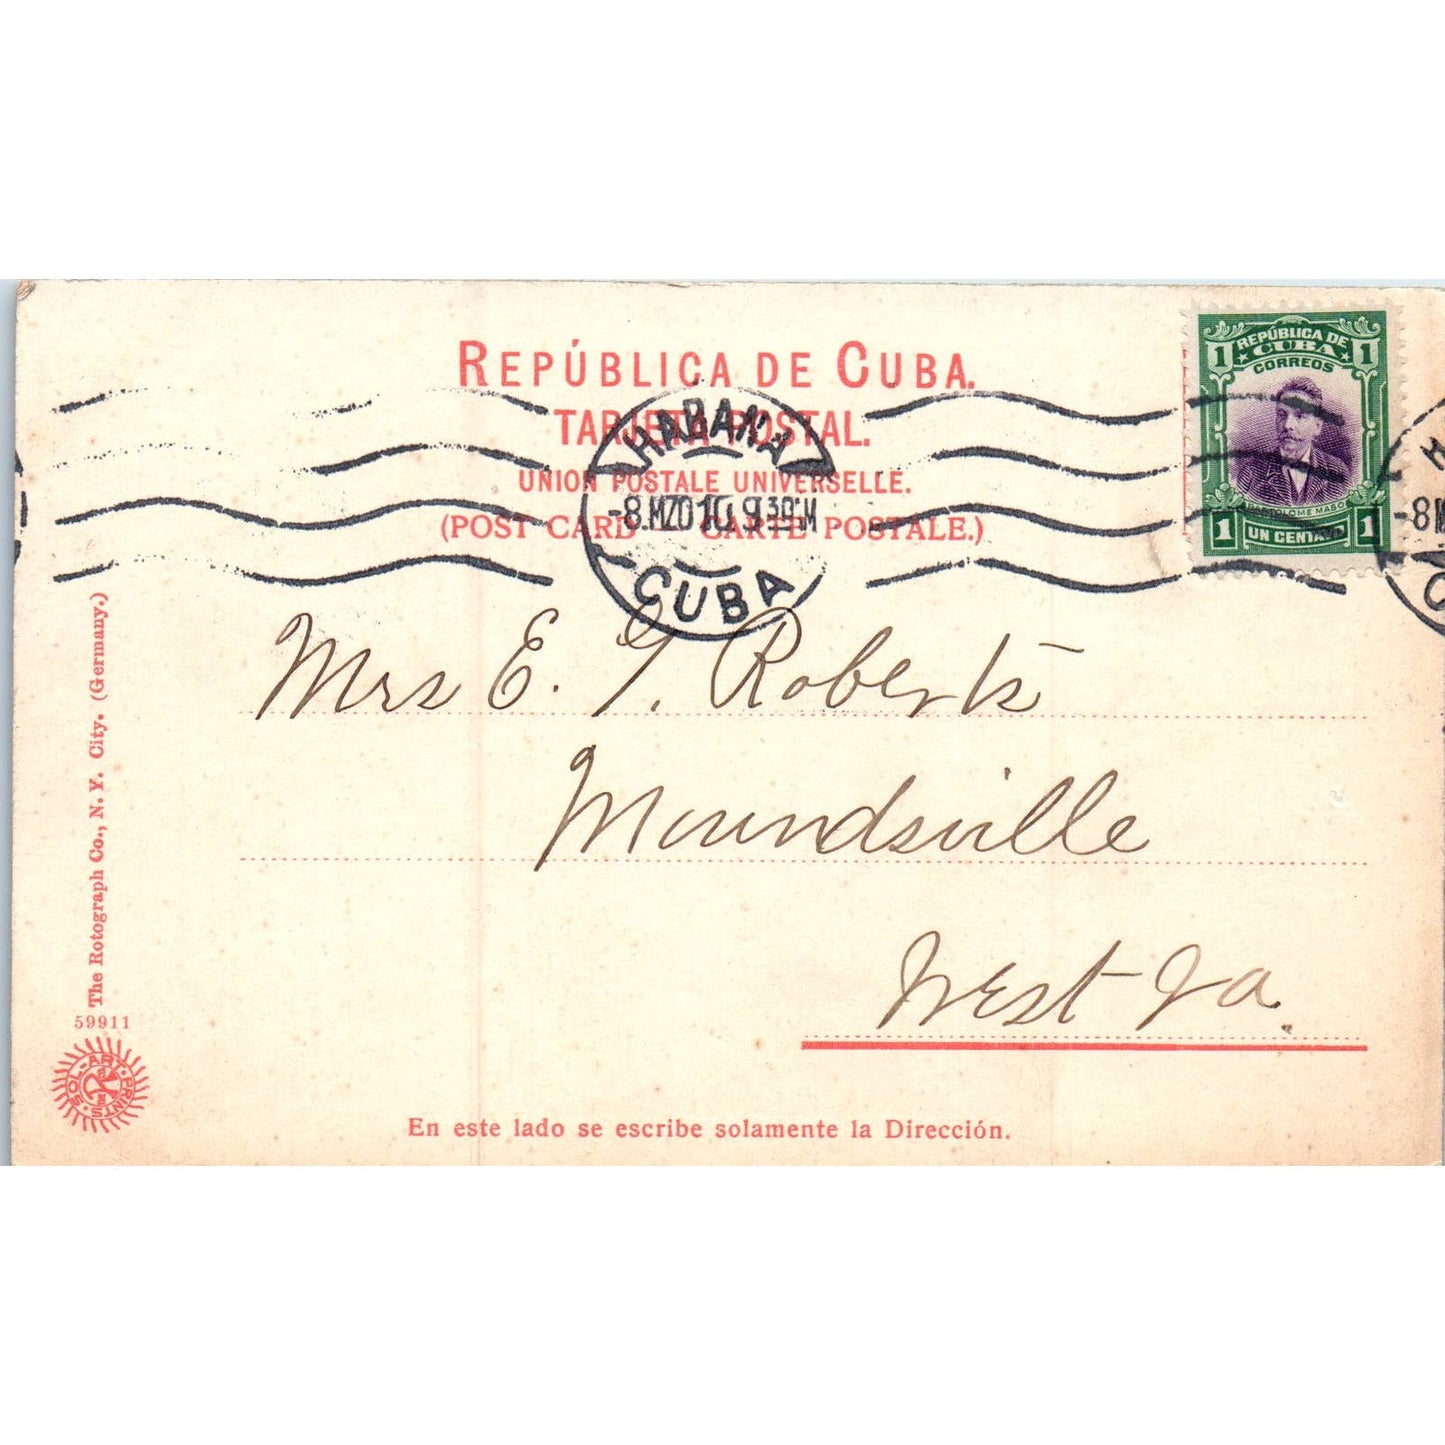 REPÚBLICA DE CUBA.
TARJETA POSTAL.
UNION POSTALE UNIVERSELLE.
(POST CARD CARTE POSTALE.)
HABANA
-8.MZO 10 9 30 M
CUBA
REPÚBLICA DE
CUBA
CORREOS
1 1
BARTOLOME MASO
1 UN CENTAVO 1
H
-8 M
C
Mrs E. G. Roberts
Moundsville
West Va.
The Rotograph Co., N. Y. City. (Germany.)
59911
SOL-ART-PRINTS
En este lado se escribe solamente la Dirección.